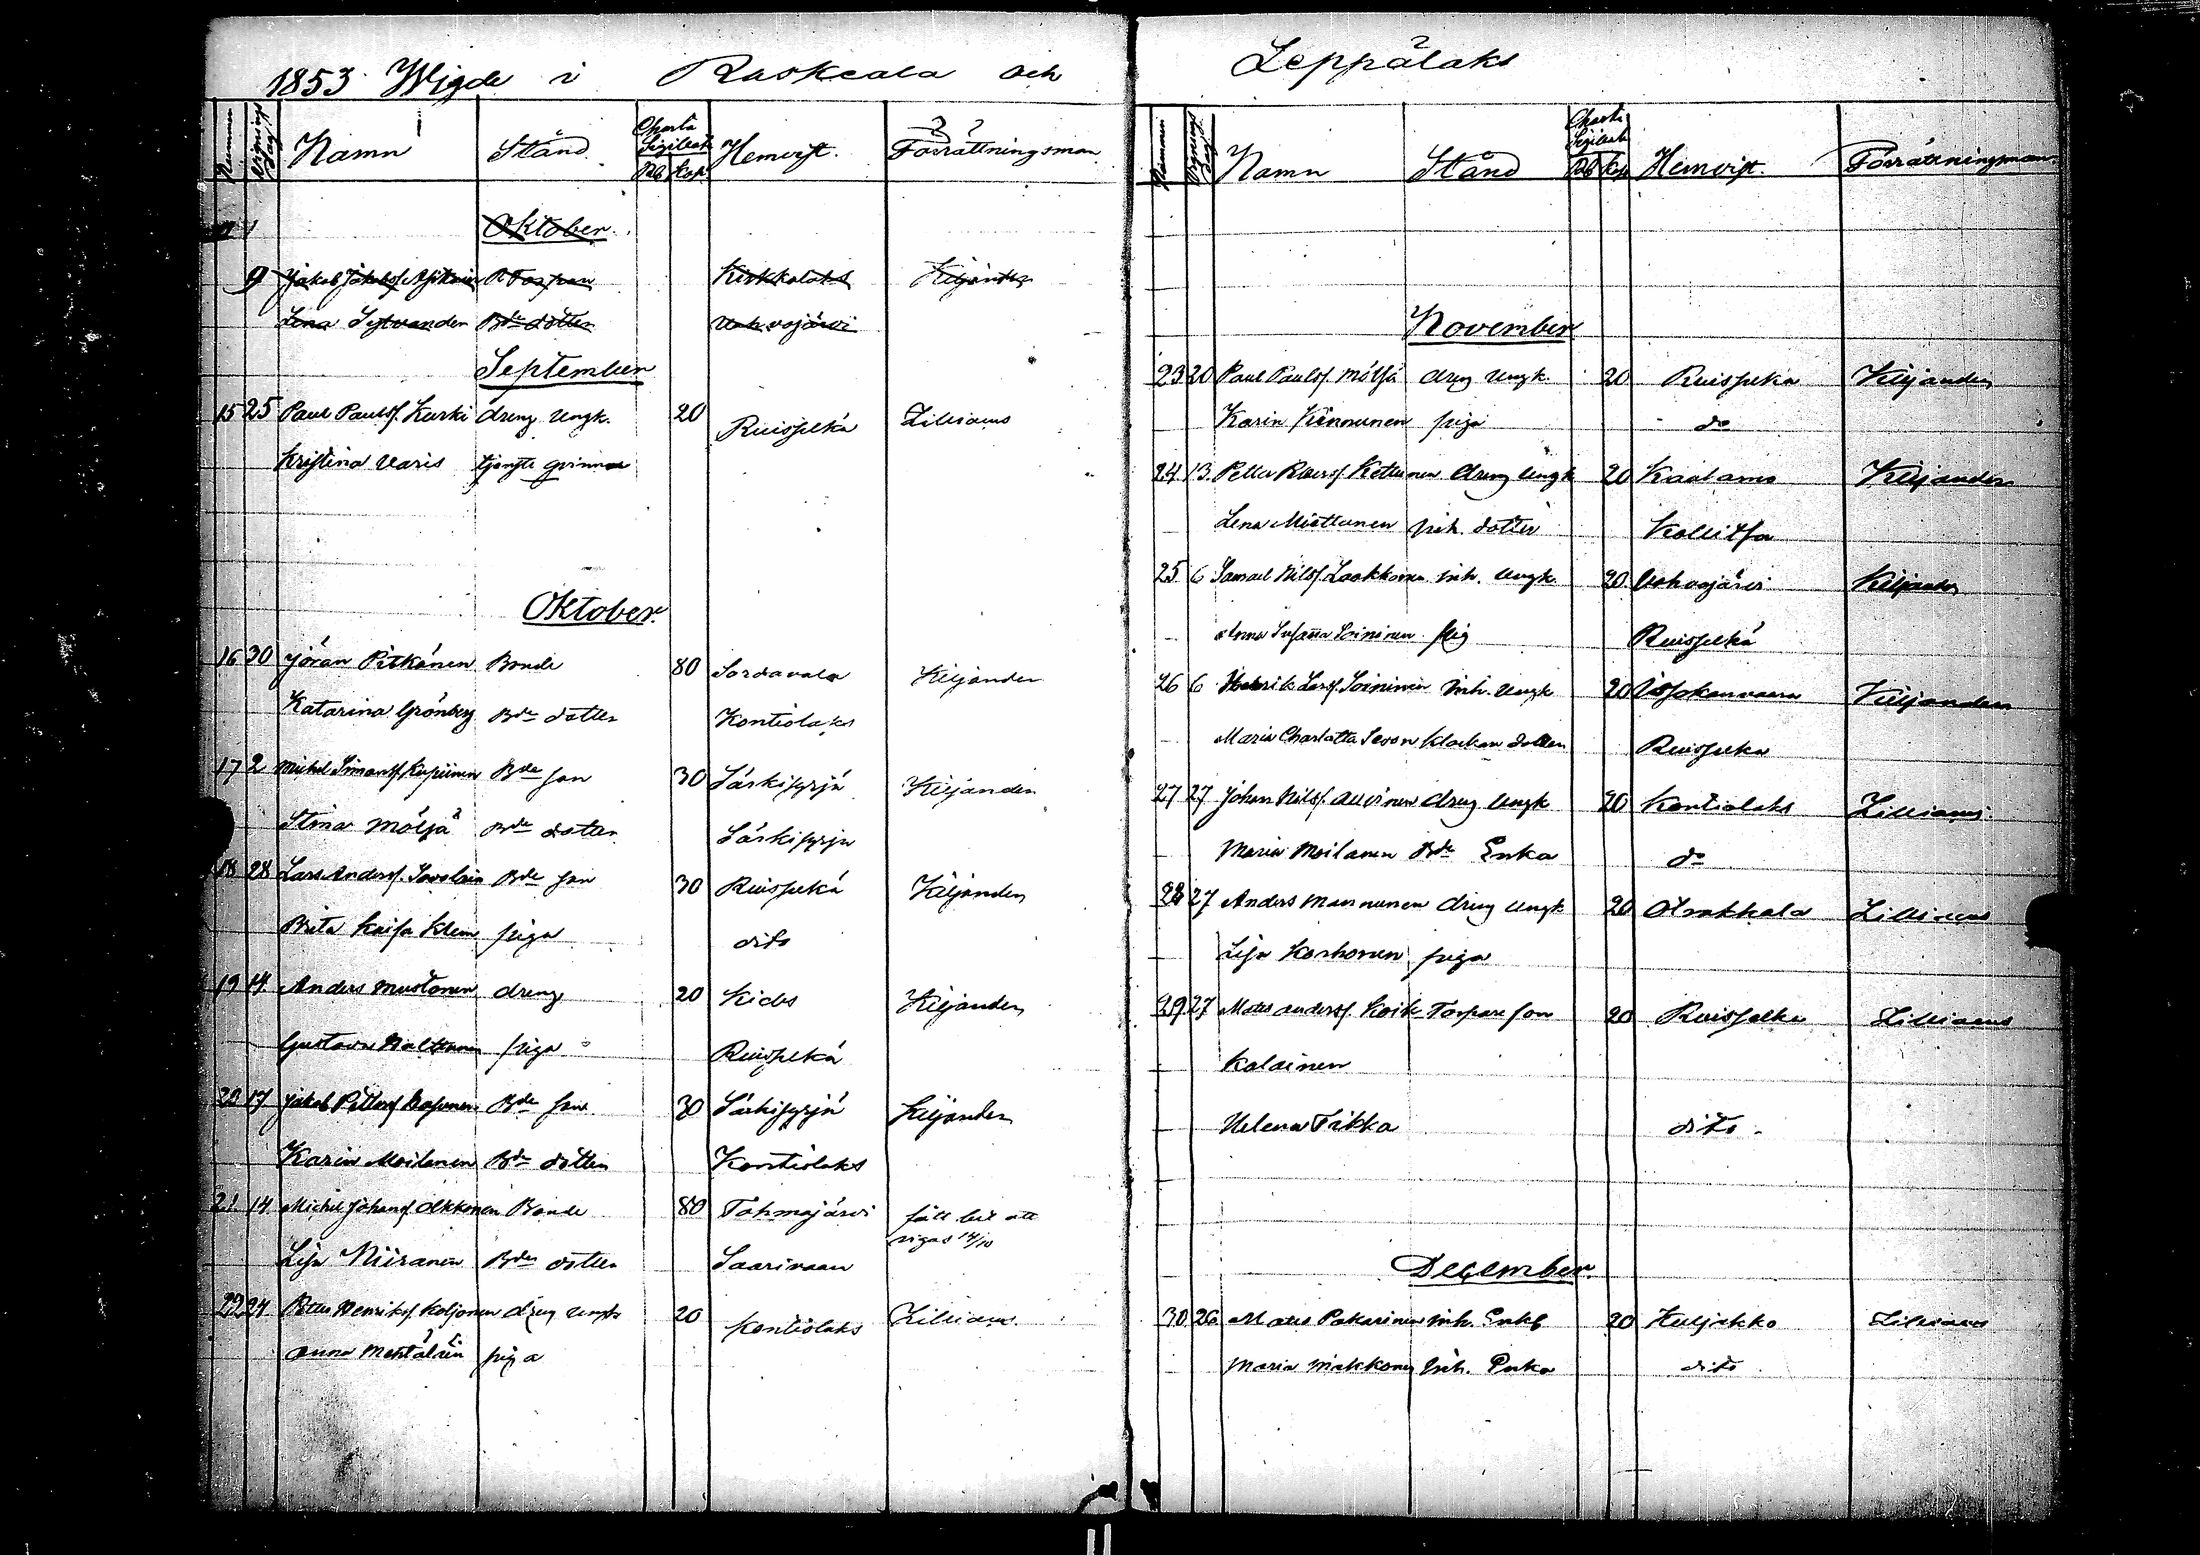 1853 Wigde i Ruskeala och
Nummer Vignings dag Namn Stånd Charta Sigilat Rub Kop Hemvist. Förrättningsman
Oktober
9 Jakob Jakobss. Torpare Kirkkolaks Kiljander
Lena Sylvander Bde dotter Uukuojärvi
September
15 25 Paul Paulss. Kurki dräng Ungk. 20 Ruisselkä Zilliacus
Kristina Varis tjenste qvinna
Oktober.
16 30 Jöran Pitkänen Bonde 80 Sordavala Kiljander
Katarina Grönberg Bde dotter Kontiolaks
17 2 Michel Simonss. Kupiinen Bde son 30 Särkisyrjä Kiljander
Stina Möljä Bde dotter Särkisyrjä
18 28 Lars Anderss. Savolain Bde son 30 Ruisselkä Kiljander
Brita Kaisa Klem piga dito
19 14 Anders Mustonen dräng 20 Kides Kiljander
Gustava piga Ruisselkä
20 17 Jakob Petterss. Bde son 30 Särkisyrjä Kiljander
Karin Moilanen Bde dotter Kontiolaks
21 14 Michel Johanss. Olkkonen Bonde 80 Tohmajärvi fått bet. att
vigas 14/10
Lisa Niiranen Bde dotter Saarivaara
22 24 Petter Henrikss. Koljonen dräng Ungk 20 Kontiolaks Zilliacus
Anna Mehtäläin piga
Leppälaks
Nummer Vignings dag Namn Stånd Charta Sigilat Rub Kop Hemvist. Förrättningsman
November
23 20 Paul Paulss. Möljä dräng Ungk. 20 Ruisselkä Kiljander
Karin Kinnunen piga do
24 13 Petter Kettunen dräng Ungk 20 Kaalamo Kiljander
Lena Miettunen Inh. dotter Kollitsa
25 6 Samuel Nilss. Laakkonen Inh. Ungk. 20 Uskuojärvi Kiljander
Anna Susanna Soininen pig Ruisselkä
26 6 Henrik Larss. Soininen Inh. Ungk 20 Kiljander
Maria Charlotta Seson Klockare dotter Ruisselkä
27 27 Johan Nilss. Alvinen dräng Ungk 20 Kontiolaks Zilliacus
Maria Moilanen Bde Enka do
28 27 Anders Mannunen dräng Ungk 20 Otrakkala Zilliacus
Lisa Korhonen piga
29 27 Mats Anderss. Koik Torpare son 20 Ruisselkä Zilliacus
kalainen
Helena Tikka dito
December
30 26 Mats Pakarinen Inh. Enkl 20 Kuljakko Zilliacus
Maria Makkonen Inh. Enka dito